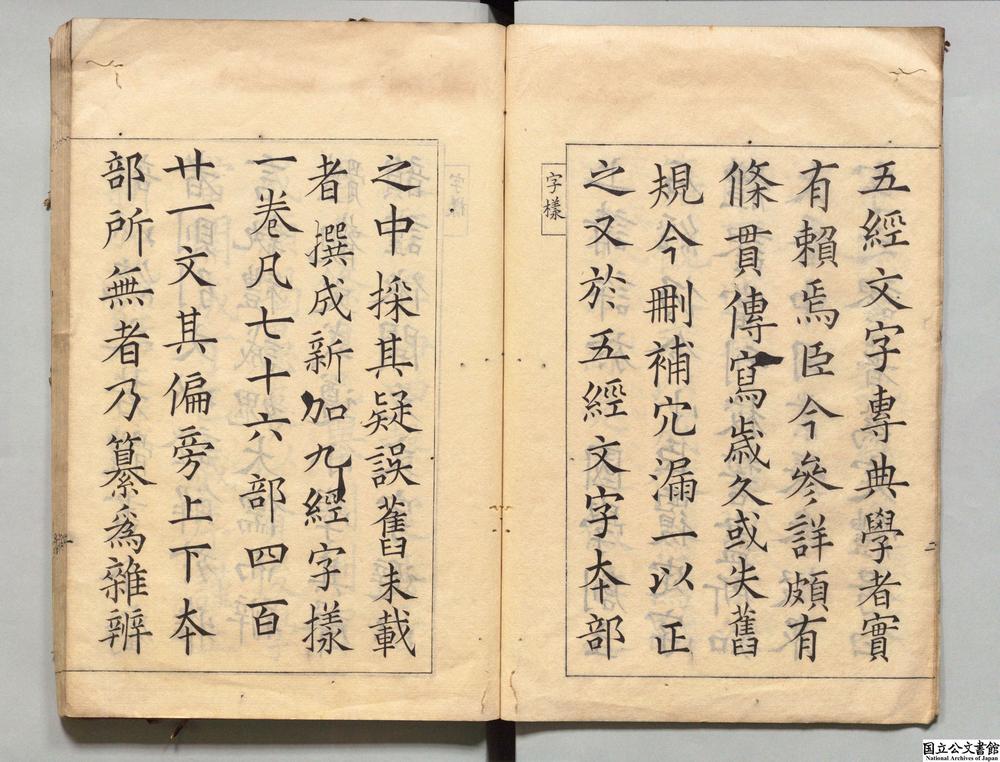 五經文字專典學者實
有賴焉臣今參詳頗有
條貫傳寫歲久或失舊
規今刪補冗漏一以正
之又於五經文字本部
字樣
之中採其疑誤舊未載
者撰成新加九經字樣
一卷凡七十六部四百
廿一文其偏旁上下本
部所無者乃纂為雜辨
国立公文書館
National Archives of Japan